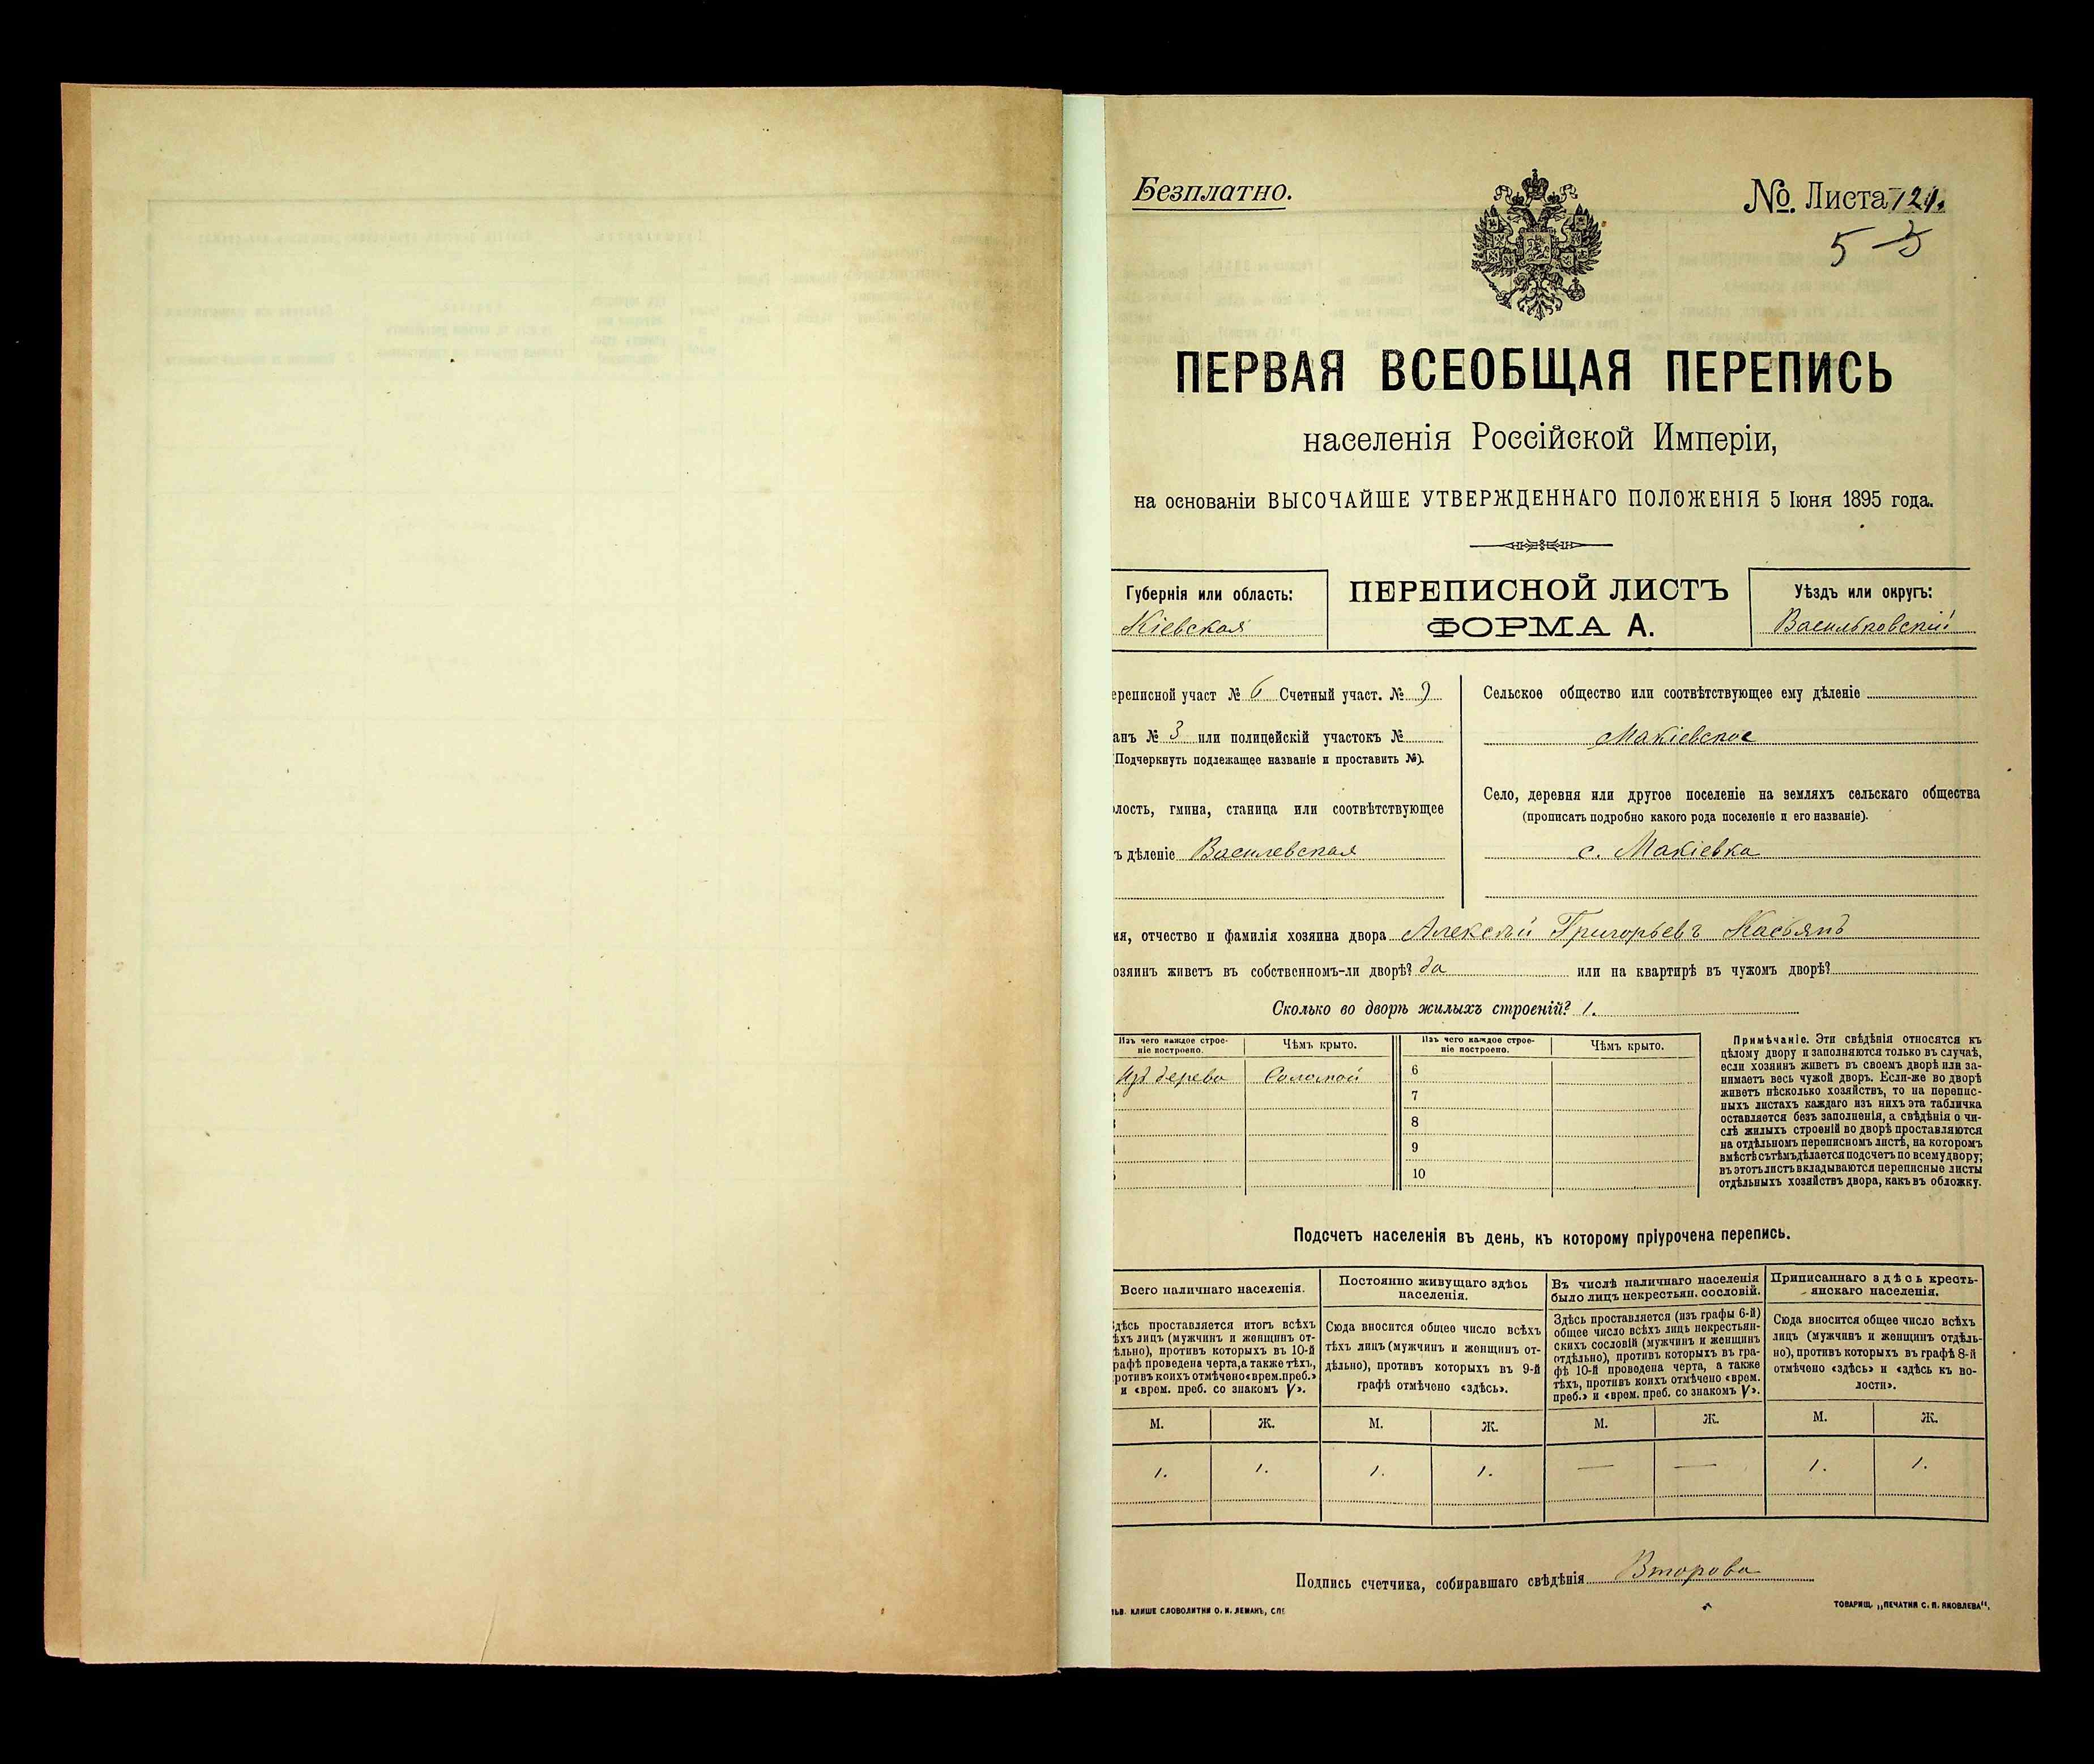 Безплатно.
№. Листа 121.
5
ПЕРВАЯ ВСЕОБЩАЯ ПЕРЕПИСЬ
населенія Россійской Имперіи,
на основаніи ВЫСОЧАЙШЕ УТВЕРЖДЕННАГО ПОЛОЖЕНІЯ 5 Іюня 1895 года.
Губернія или область:
Кіевская
ПЕРЕПИСНОЙ ЛИСТЪ
ФОРМА А.
Уѣздъ или округъ:
Васильковскій
ереписной участ № 6 Счетный участ. № 9
анъ № 3 или полицейскій участокъ №
(Подчеркнуть подлежащее названіе и проставить №).
лость, гмина, станица или соотвѣтствующее
ъ дѣленіе Василевская
Сельское общество или соотвѣтствующее ему дѣленіе
Макіевское
Село, деревня или другое поселеніе на земляхъ сельскаго общества
(прописать подробно какого рода поселеніе и его названіе).
с. Макіевка
мя, отчество и фамилія хозяина двора Алексѣй Григорьевъ Касьянъ
озяинъ живетъ въ собственномъ-ли дворѣ? да или на квартирѣ въ чужомъ дворѣ?
Сколько во дворѣ жилыхъ строеній? 1.
Изъ чего каждое строе-
ніе построено.
Чѣмъ крыто.
Изъ чего каждое строе-
ніе построено.
Чѣмъ крыто.
Изъ дерева Соломой
6
7
8
9
10
Примѣчаніе. Эти свѣдѣнія относятся къ
цѣлому двору и заполняются только въ случаѣ,
если хозяинъ живетъ въ своемъ дворѣ или за-
нимаетъ весь чужой дворъ. Если-же во дворѣ
живетъ нѣсколько хозяйствъ, то на перепис-
ныхъ листахъ каждаго изъ нихъ эта табличка
оставляется безъ заполненія, а свѣдѣнія о чи-
слѣ жилыхъ строеній во дворѣ проставляются
на отдѣльномъ переписномъ листѣ, на которомъ
вмѣстѣ съ тѣмъ дѣлается подсчетъ по всему двору;
въ этотъ листъ вкладываются переписные листы
отдѣльныхъ хозяйствъ двора, какъ въ обложку.
Подсчетъ населенія въ день, къ которому пріурочена перепись.
Всего наличнаго населенія.
Здѣсь проставляется итогъ всѣхъ
ѣхъ лицъ (мужчинъ и женщинъ от-
ѣльно), противъ которыхъ въ 10-й
рафѣ проведена черта, а также тѣхъ,
ротивъ коихъ отмѣчено «врем. преб.»
и «врем. преб. со знакомъ V».
Постоянно живущаго здѣсь
населенія.
Сюда вносится общее число всѣхъ
тѣхъ лицъ (мужчинъ и женщинъ от-
дѣльно), противъ которыхъ въ 9-й
графѣ отмѣчено «здѣсь».
Въ числѣ наличнаго населенія
было лицъ некрестьян. сословій.
Здѣсь проставляется (изъ графы 6-й)
общее число всѣхъ лицъ некрестьян-
скихъ сословій (мужчинъ и женщинъ
отдѣльно), противъ которыхъ въ гра-
фѣ 10-й проведена черта, а также
тѣхъ, противъ коихъ отмѣчено «врем.
преб.» и «врем. преб. со знакомъ V».
Приписаннаго здѣсь кресть-
янскаго населенія.
Сюда вносится общее число всѣхъ
лицъ (мужчинъ и женщинъ отдѣль-
но), противъ которыхъ въ графѣ 8-й
отмѣчено «здѣсь» и «здѣсь къ во-
лости».
М. Ж. М. Ж. М. Ж. М. Ж.
1. 1. 1. 1. — — 1. 1.
Подпись счетчика, собиравшаго свѣдѣнія Второва
ЬВ. КЛИШЕ СЛОВОЛИТНИ О. И. ЛЕМАНЪ, СПБ
ТОВАРИЩ. „ПЕЧАТНЯ С. П. ЯКОВЛЕВА“.